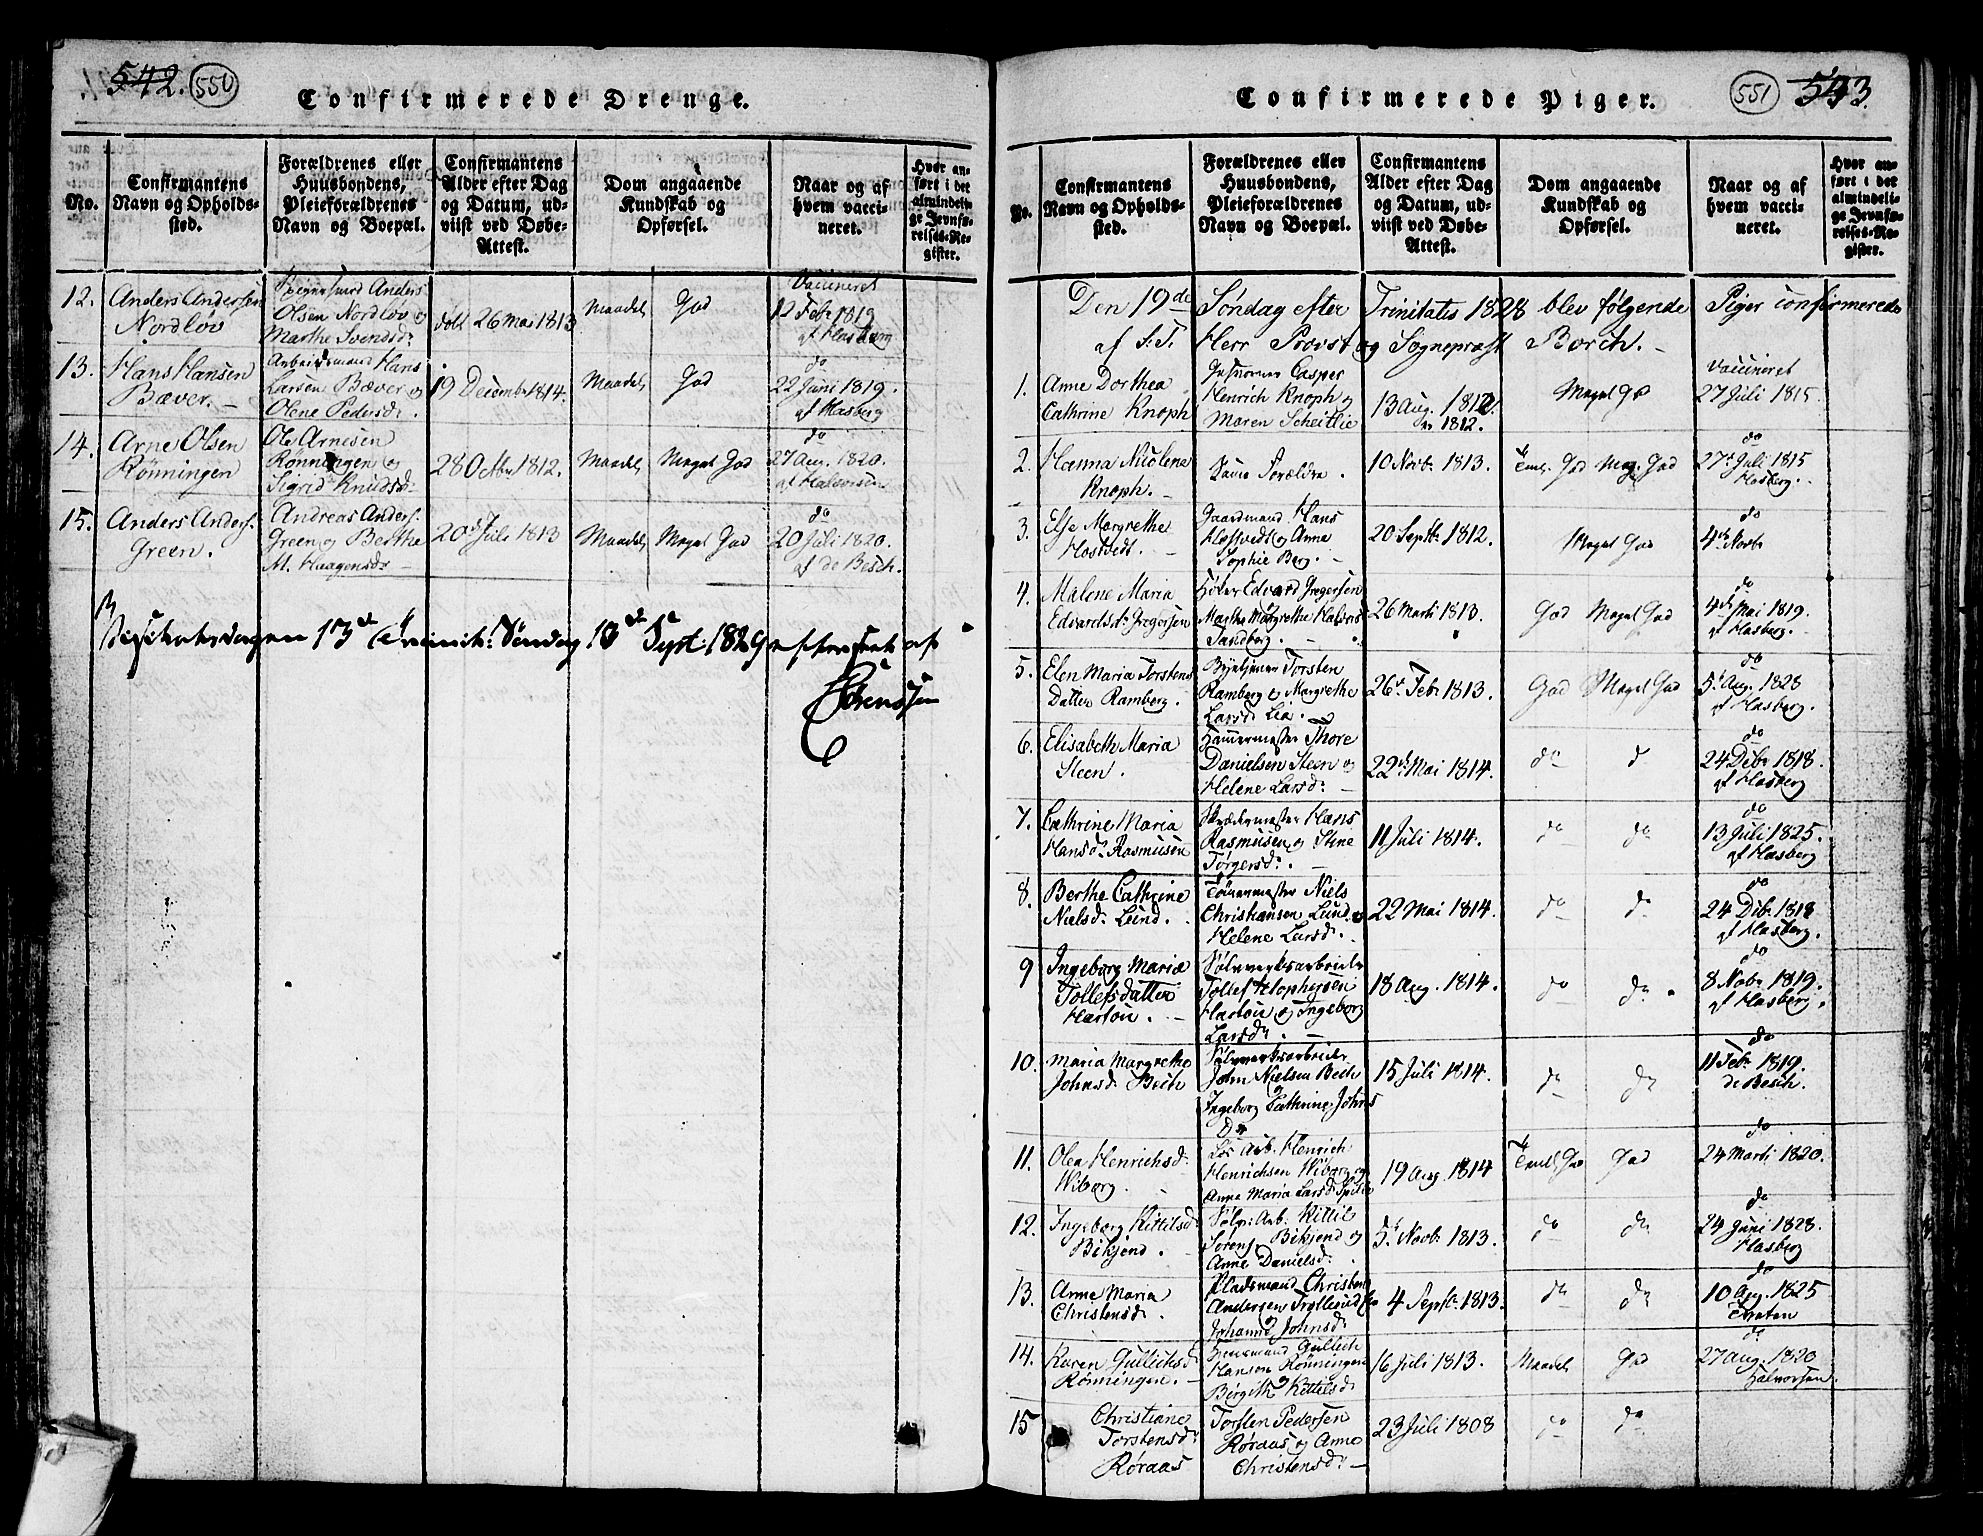 542. 550
Confirmerede Drenge.
No.
Confirmantens
Navn og Opholds-
sted.
Forældrenes eller
Huusbondens,
Pleieforældrenes
Navn og Boepæl.
Confirmantens
Alder efter Dag
og Datum, ud-
viist ved Døbe-
Attest.
Dom angaaende
Kundskab og
Opførsel.
Naar og af
hvem vacci-
neret.
Hvor an-
ført i det
almindeli-
ge Jevnfø-
relses-Re-
gister.
12. Anders Andersen
Nordløv
Anders
Olsen Nordløv og
Marthe Svendsdr
døbt 26 Mai 1813
Maadel. God
Vaccineret
12 Febr 1819
af Hasberg
13. Hans Hansen
Bæver. -
Arbeidsmand Hans
Larsen Bæver og
Olene Pedersdr.
19 December 1814.
Maadel. God
do
22 Juni 1819.
af Hasberg
14. Arne Olsen
Rönningen
Ole Arnesen
Rönningen og
Sigrid Knudsdr.
28 Octbr 1812.
Maadel. Meget God
do
27 Aug. 1820.
af Halvorsen
15. Anders Anders.
Green.
Andreas Anders.
Green og Berthe
M. Haagensdr -
20de Juli 1813
Maadel. Meget God
do
20 Juli 1820.
af de Besch.
Visitatsdagen 13de Trinit: Søndag 13de Sept: 1829 efterseet af
Sørenssen
551 543.
Confirmerede Piger.
No.
Confirmantens
Navn og Opholds-
sted.
Forældrenes eller
Huusbondens,
Pleieforældrenes
Navn og Boepæl.
Confirmantens
Alder efter Dag
og Datum, ud-
viist ved Døbe-
Attest.
Dom angaaende
Kundskab og
Opførsel.
Naar og af
hvem vacci-
neret.
Hvor an-
ført i det
almindeli-
ge Jevnfø-
relses-Re-
gister.
Den 19de Søndag efter Trinitatis 1828 blev følgende Piger confirmerede
af S.T. Herr Provst og Sognepræst Borch. -
1. Anne Dorthea
Cathrine Knoph
Casper
Henrich Knoph og
Maren Scheitlie
13 Aug. 1812.
1812.
Meget God
Vaccineret
27 Juli 1815
2. Hanna Nicolena
Knoph. -
Samme Forældre.
10 Novbr. 1813.
God Meg. God
do
27de Juli 1815
Hasberg.
3. Else Margrethe
Hostvedt. -
Gaardmand Hans
Hostvedt og Anne
Sophie Berg.
20 Septbr. 1812.
Meget God
do
4de Novbr
4. Malene Maria
Edvardsdr Gregersen
Edvard Gregersen
Marthe Margrethe Halvors
Sandberg.
26 Marti 1813.
God Meget God
do
4de Mai 1819.
af Hasberg.
5. Elen Maria Torstens
Datter Ramberg.
Torsten
Ramberg og Margrethe
Larsdr Lia.
26de Febr 1813.
God Meget God
do
5te Aug. 1828
af Hasberg.
6. Elisabeth Maria
Steen.
Hammermester Thore
Danielsen Steen og
Helene Larsdr. -
22de Mai 1814.
do do
do
24 Dcbr 1818.
af Hasberg
7. Cathrine Maria
Hansdr Rasmusen
Skrædermester Hans
Rasmusen og Stine
Törgersdr. -
11 Juli 1814.
do do
do
13 Juli 1825.
af Hasberg
8. Berthe Cathrine
Nielsdr Lund.
Tömermester Niels
Christiansen Lund og
Helene Larsdr.
22 Mai 1814.
do do
do
24 Dcbr 1818
af Hasberg.
9 Ingeborg Maria
Tollefsdatter
Harton. -
Sölvverksarbeider
Tollef
Harton og Ingeborg
Larsdr. -
18 Aug. 1814.
do do
do
8 Novbr 1819.
af Hasberg.
10. Maria Margrethe
Johnsdr Beck
Sölvverksarbeider
John Nielsen Beck
og
Ingeborg Cathrine Johns
Dr
15 Juli 1814.
do do
do
11 Febr 1819.
de Besch.
11. Olea Henrichsdr.
Wiborg. -
Løs Arb. Henrich
Henrichsen Wiborg og
Anne Maria Larsdr
19 Aug. 1814
God God
do
24 Marti 1820.
12. Ingeborg Kittilsdr
Bikjend. -
Sölv. Arb. Kittil
Sörens. Bikjend og
Anne Danielsdr.
Novbr. 1813.
do do
do
24 Juni 1828.
Hasberg
13. Anne Maria
Christensdr.
Pladsmand Christen
Andersen
Johanne Johnsdr
4 Septbr. 1813.
do do
do
10 Aug. 1825
14. Karen Gullichsdr
Rønningen. -
Gullich
Hansen Rönningen
og
Birgith Kittilsdr
16 Juli 1813.
Maadel. God
do
27 Aug. 1820
Halvorsen.
15 Christiane
Torstensdr
Røraas
Torsten Pedersen
Røraas og Anne
Christensdr. -
23 Juli 1808
do do